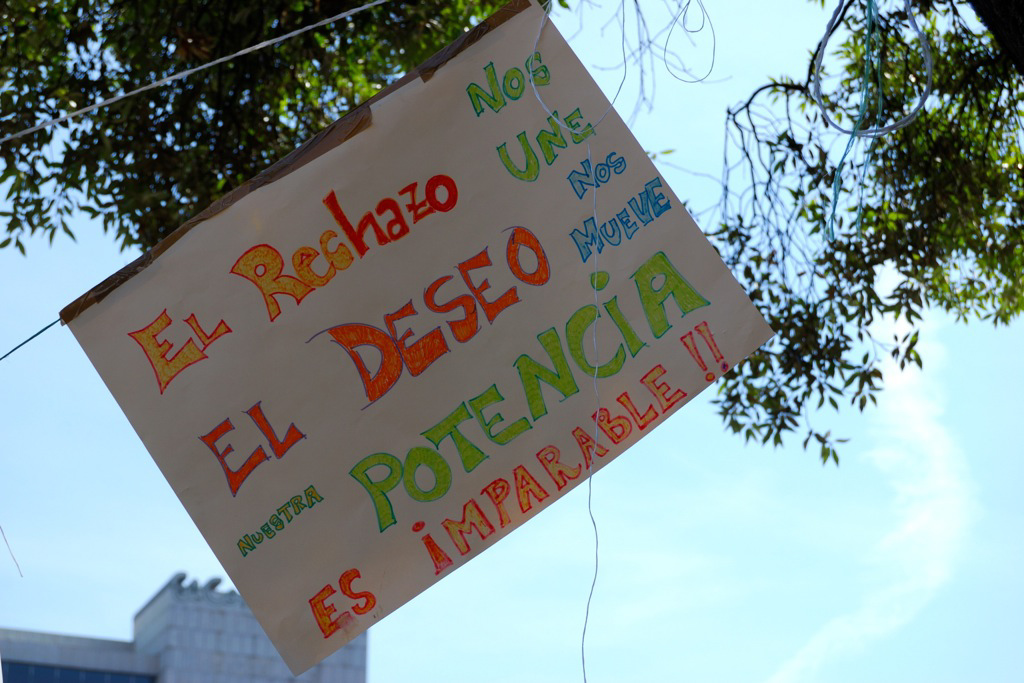 EL Rechazo NOS UNE
EL DESEO NOS MUEVE
NUESTRA POTENCIA
ES iMPARABLE!!